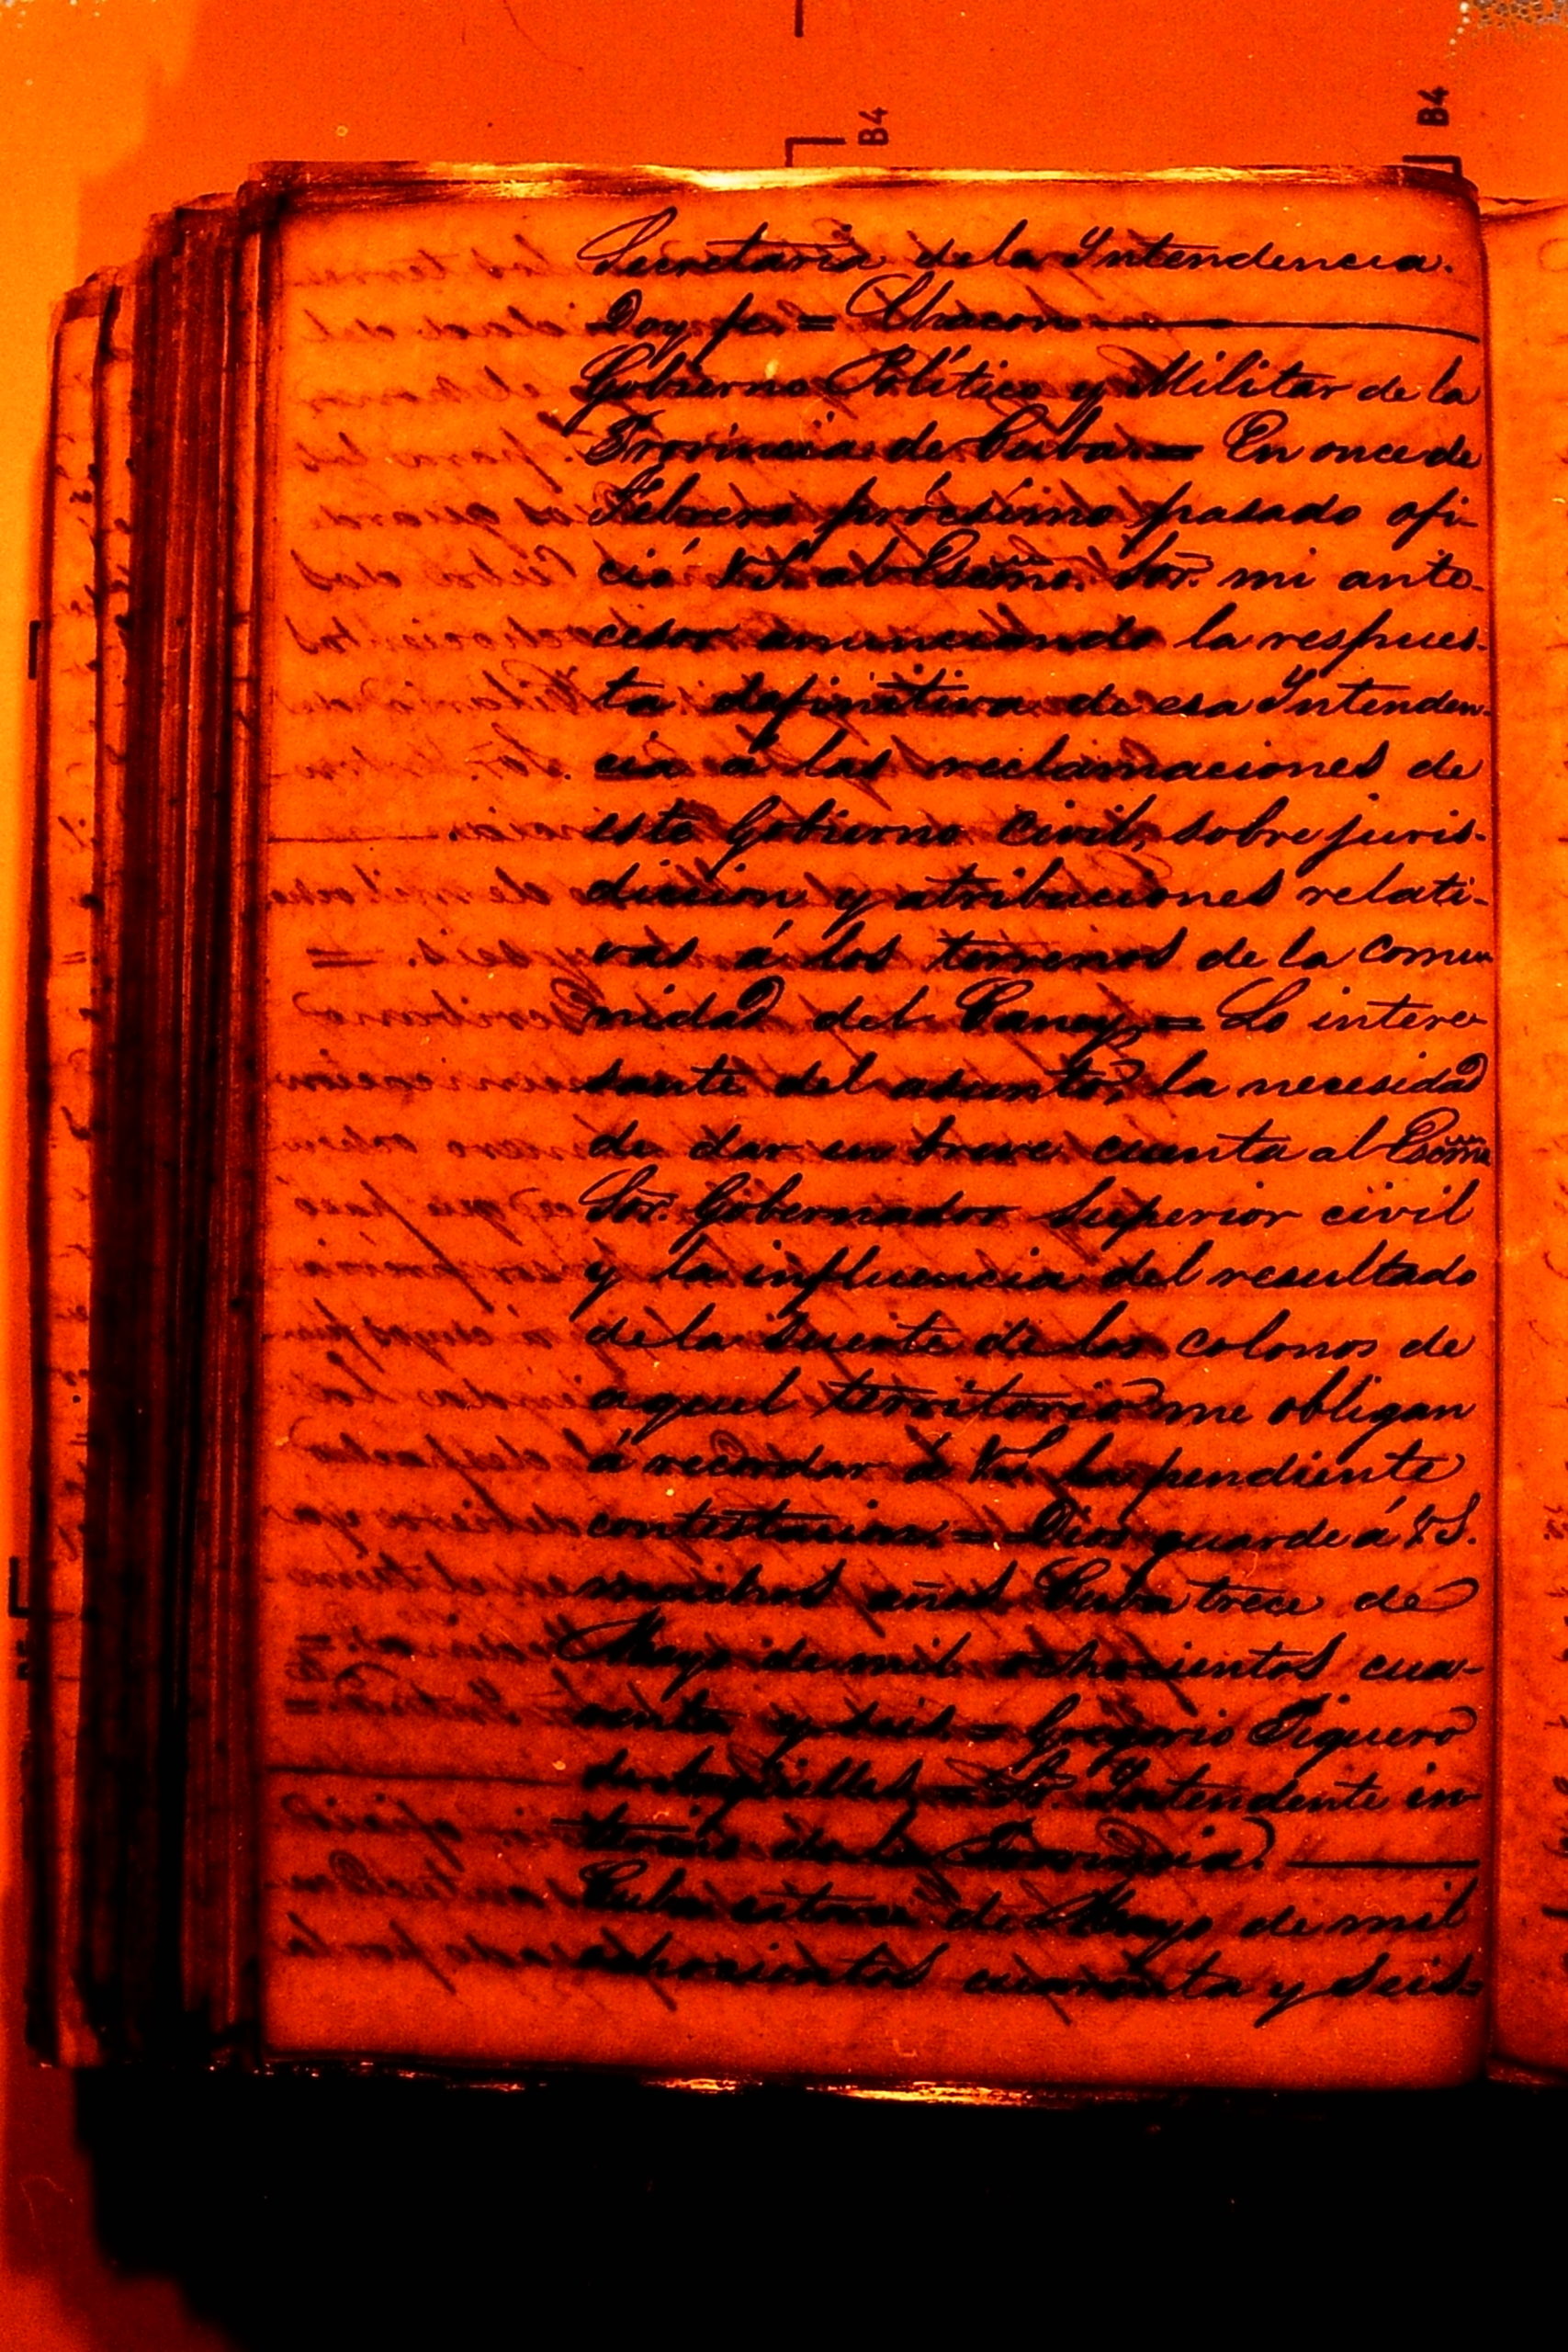 B4
B4
Secretaria de la Yntendencia.
Doy fe =
Gobierno Político y Militar de la
Provincia de Cuba = En once de
Febrero prócsimo pasado ofi-
ció VS. al Escmo. Sor. mi ante-
cesor anunciando la respues-
ta definitiva de esa Yntenden-
cia á las reclamaciones de
este Gobierno civil, sobre juris-
diccion y atribuciones relati-
vas á los terrenos de la comu
nidad del Caney = Lo intere-
sante del asunto, la necesidad
de dar en breve cuenta al Escmo
Sor. Gobernador Superior civil
y la influencia del resultado
de la suerte de los colonos de
aquel territorio me obligan
á recordar á VS. la pendiente
contestacion = Dios guarde á VS.
muchos años Cuba trece de
Mayo de mil ochocientos cua-
renta y seis = Gregorio Piquero
de Arguelles = Sr. Yntendente in-
terino de la Provincia.
Cuba catorce de Mayo de mil
ochocientos cuarenta y seis =